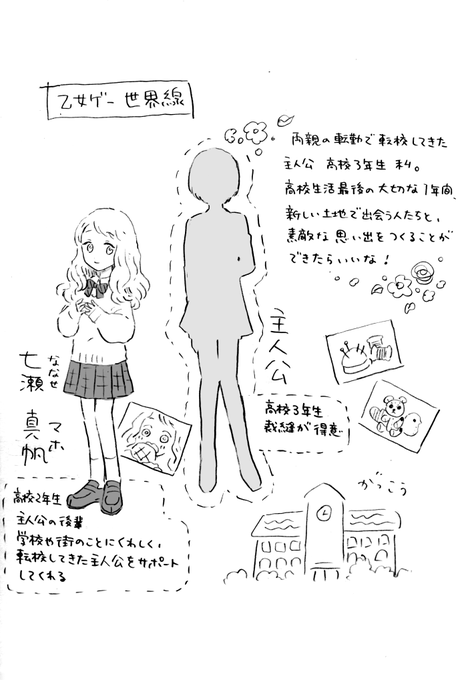 乙女ゲー世界線
両親の転勤で転校してきた
主人公 高校3年生 私。
高校生活最後の大切な1年間、
新しい土地で出会う人たちと、
素敵な思い出をつくることが
できたらいいな!
主人公
高校3年生
裁縫が得意
七瀬 真帆
ななせ マホ
高校2年生
主人公の後輩
学校や街のことにくわしく、
転校してきた主人公をサポート
してくれる
がっこう